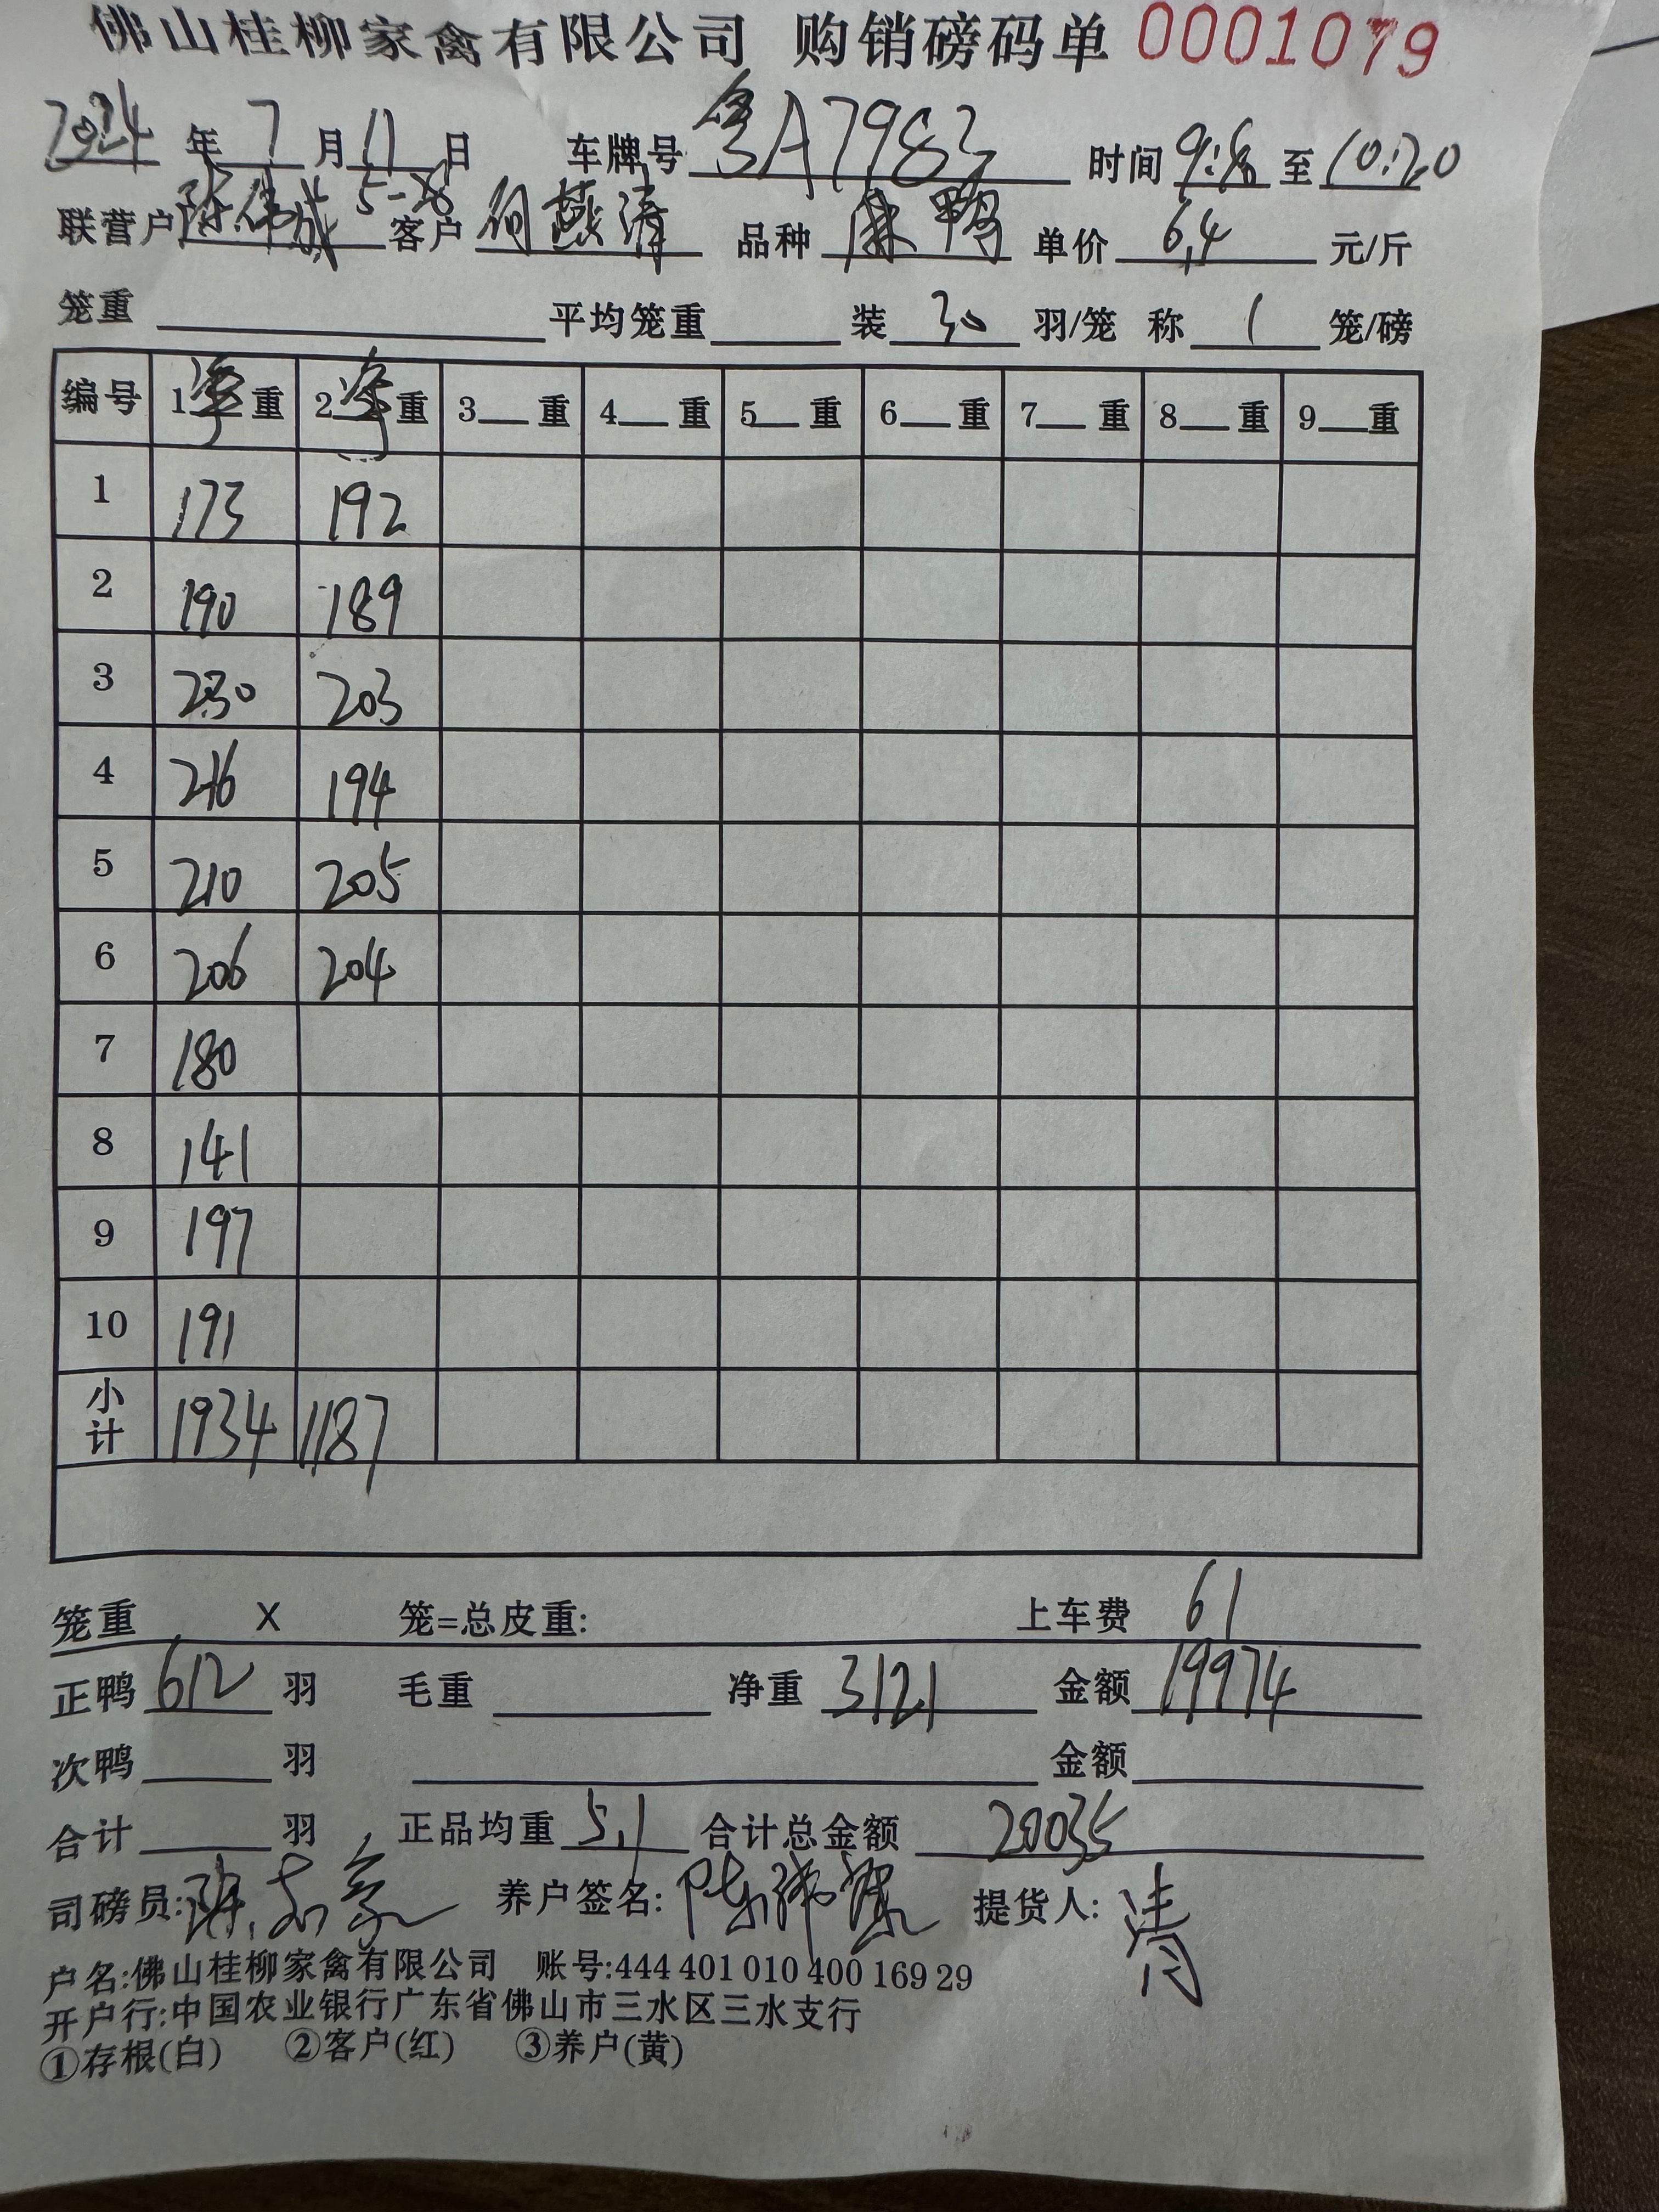 佛山桂柳家禽有限公司 购销磅码单 0001079
2024 年 7 月 11 日 车牌号 粤A7983 时间 至 10:20
联营户 陈伟成 客户 何燕清 品种 麻鸭 单价 6.4 元/斤
笼重 平均笼重 装 30 羽/笼 称 1 笼/磅
编号 1 净 重 2 净 重 3 重 4 重 5 重 6 重 7 重 8 重 9 重
1 173 192
2 190 189
3 230 203
4 216 194
5 210 205
6 206 204
7 180
8 141
9 197
10 191
小计 1934 1187
笼重 X 笼=总皮重: 上车费 61
正鸭 612 羽 毛重 净重 3121 金额 19974
次鸭 羽 金额
合计 羽 正品均重 5.1 合计总金额 20035
司磅员: 养户签名: 提货人: 清
户名:佛山桂柳家禽有限公司 账号:444 401 010 400 169 29
开户行:中国农业银行广东省佛山市三水区三水支行
①存根(白) ②客户(红) ③养户(黄)